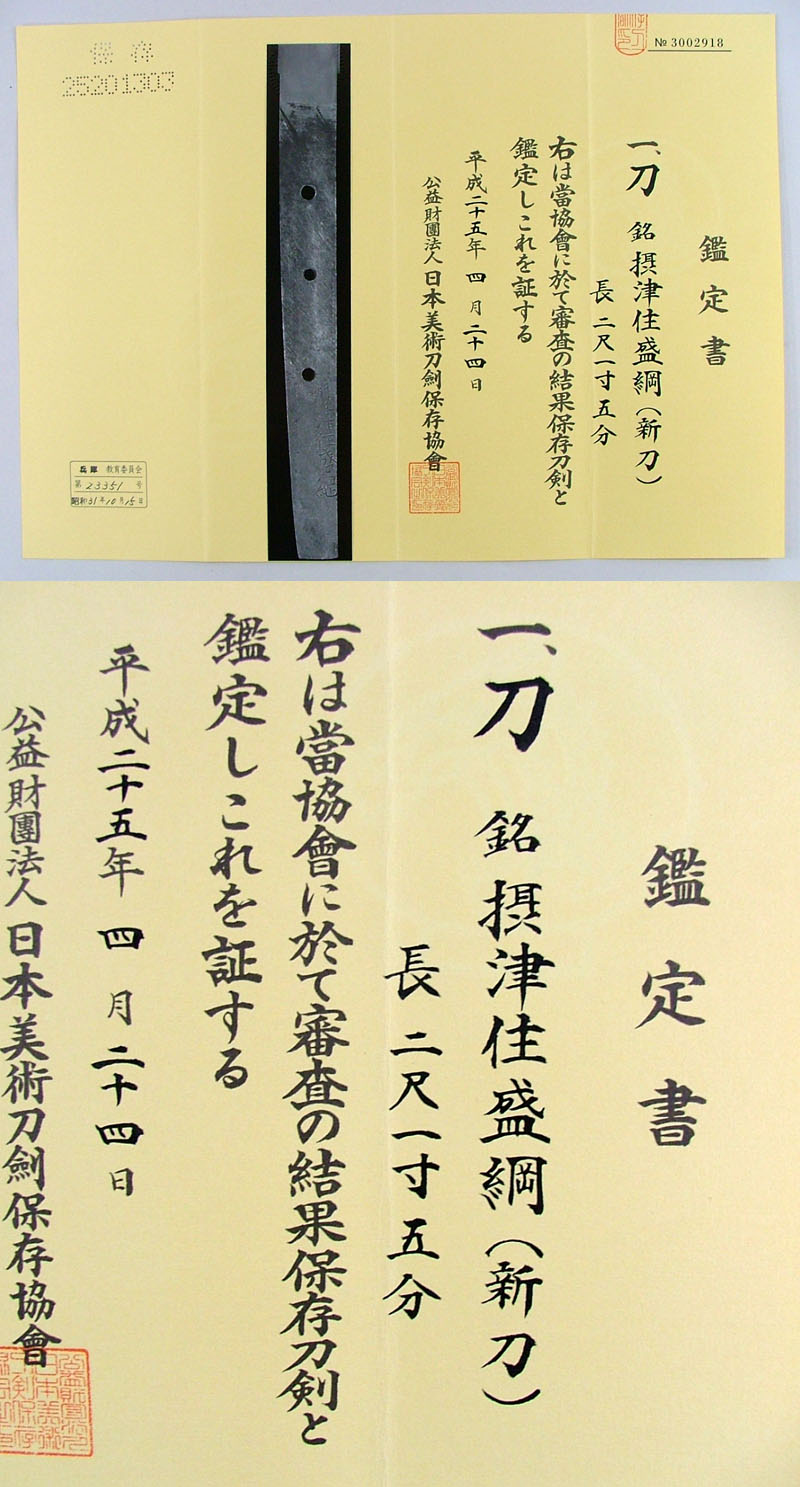 № 3002918
鑑定書
一、刀 銘 摂津住盛綱(新刀)
長 二尺一寸五分
右は當協會に於て審査の結果保存刀剣と
鑑定しこれを証する
平成二十五年 四 月 二十四 日
公益財團法人 日本美術刀劍保存協會
保存
25201303
兵庫 教育委員会
第 23351 号
昭和31年10月15日
鑑定書
一、刀 銘 摂津住盛綱(新刀)
長 二尺一寸五分
右は當協會に於て審査の結果保存刀剣と
鑑定しこれを証する
平成二十五年 四 月 二十四 日
公益財團法人 日本美術刀劍保存協會